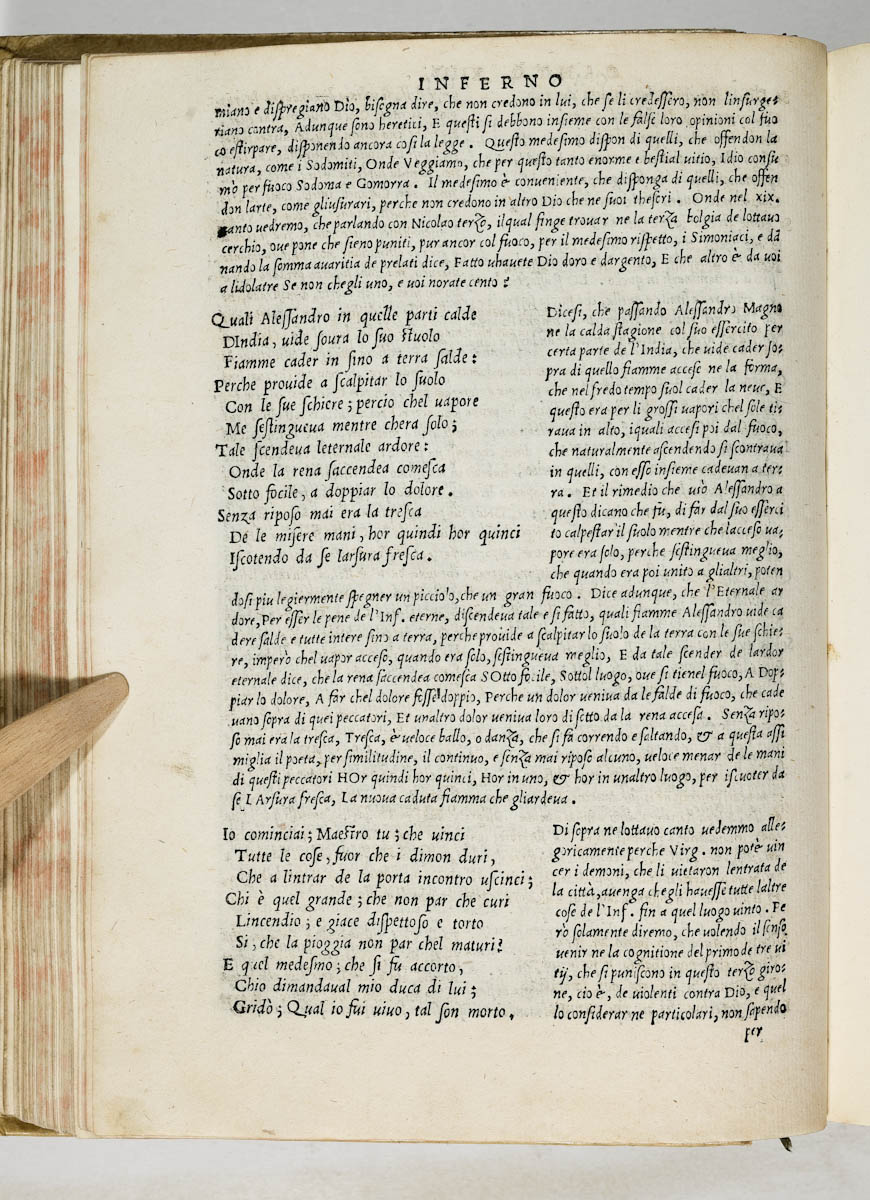 INFERNO
miano e dispregiano Dio, bisogna dire, che non credono in lui, che se li credessero, non linsurge-
riano contra, Adunque sono heretici, E questi si debbono insieme con le false loro opinioni col fuo
co estirpare, disponendo ancora cosi la legge . Questo medesimo dispon di quelli, che offendon la
natura, come i Sodomiti, Onde Veggiamo, che per questo tanto enorme e bestial uitio, Idio consu
mò per fuoco Sodoma e Gomorra . Il medesimo è conueniente, che disponga di quelli, che offen
don larte, come gliusurari, perche non credono in altro Dio che ne suoi thesori . Onde nel xix.
canto uedremo, che parlando con Nicolao terzo, ilqual finge trouar ne la terza bolgia de lottauo
cerchio, oue pone che sieno puniti, pur ancor col fuoco, per il medesimo rispetto, i Simoniaci, e dā
nando la somma auaritia de prelati dice, Fatto uhauete Dio doro e dargento, E che altro è da uoi
a lidolatre Se non chegli uno, e uoi norate cento ?
Quali Alessandro in quelle parti calde
DIndia, uide soura lo suo stuolo
Fiamme cader in sino a terra salde :
Perche prouide a scalpitar lo suolo
Con le sue schiere ; percio chel uapore
Me sestingueua mentre chera solo ;
Tale scendeua leternale ardore :
Onde la rena saccendea comesca
Sotto focile, a doppiar lo dolore .
Senza riposo mai era la tresca
De le misere mani, hor quindi hor quinci
Iscotendo da se larsura fresca .
Dicesi, che passando Alessandro Magno
ne la calda stagione col suo essercito per
certa parte de l'India, che uide cader so-
pra di quello fiamme accese ne la forma,
che nel fredo tempo suol cader la neue, E
questo era per li grossi uapori chel sole ti-
raua in alto, iquali accesi poi dal fuoco,
che naturalmente ascendendo si scontraua
in quelli, con esso insieme cadeuan a ter-
ra . Et il rimedio che usò Alessandro a
questo dicano che fu, di far dal suo esserci
to calpestar il suolo mentre che lacceso ua-
pore era solo, perche sestingueua meglio,
che quando era poi unito a glialtri, poten
dosi piu legiermente spegner un picciolo, che un gran fuoco . Dice adunque, che l'Eternale ar
dore, Per esser le pene de l'Inf. eterne, discendeua tale e si fatto, quali fiamme Alessandro uide ca
dere salde e tutte intere sino a terra, perche prouide a scalpitar lo suolo de la terra con le sue schie-
re, imperò chel uapor acceso, quando era solo, sestingueua meglio, E da tale scender de lardor
eternale dice, che la rena saccendea comesca SOtto focile, Sottol luogo, oue si tienel fuoco, A Dop-
piar lo dolore, A far chel dolore fosse doppio, Perche un dolor ueniua da le falde di fuoco, che cade
uano sopra di quei peccatori, Et unaltro dolor ueniua loro di sotto da la rena accesa . Senza ripo-
so mai era la tresca, Tresca, è ueloce ballo, o danza, che si fa correndo e saltando, & a questa assi
miglia il poeta, per similitudine, il continuo, e senza mai riposo alcuno, ueloce menar de le mani
di questi peccatori HOr quindi hor quinci, Hor in uno, & hor in unaltro luogo, per iscuoter da
se LArsura fresca, La nuoua caduta fiamma che gliardeua .
Io cominciai ; Maestro tu ; che uinci
Tutte le cose, fuor che i dimon duri,
Che a lintrar de la porta incontro uscinci ;
Chi è quel grande ; che non par che curi
Lincendio ; e giace dispettoso e torto
Si, che la pioggia non par chel maturi ?
E quel medesmo ; che si fu accorto,
Chio dimandaual mio duca di lui ;
Gridò ; Qual io fui uiuo, tal son morto .
Di sopra ne lottauo canto uedemmo alle-
goricamente perche Virg . non potè uin
cer i demoni, che li uietaron lentrata de
la città, auenga chegli hauesse tutte laltre
cose de l'Inf. fin a quel luogo uinto . Pe
rò solamente diremo, che uolendo il senso
uenir ne la cognitione del primo de tre ui
tij, che si puniscono in questo terzo giro-
ne, cio è, de uiolenti contra Dio, e quel
lo considerar ne particolari, non sapendo
per